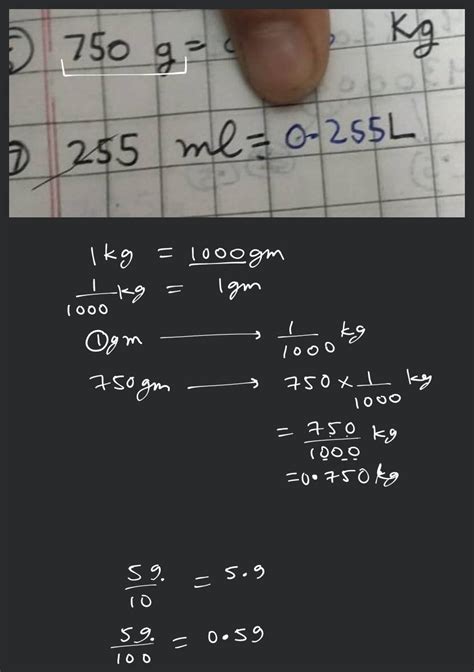 750 g = Kg
255 ml = 0.255L
1kg = 1000gm
1/1000 kg = 1gm
1gm → 1/1000 kg
750gm → 750 × 1/1000 kg
= 750/1000 kg
= 0.750kg
59./10 = 5.9
59./100 = 0.59